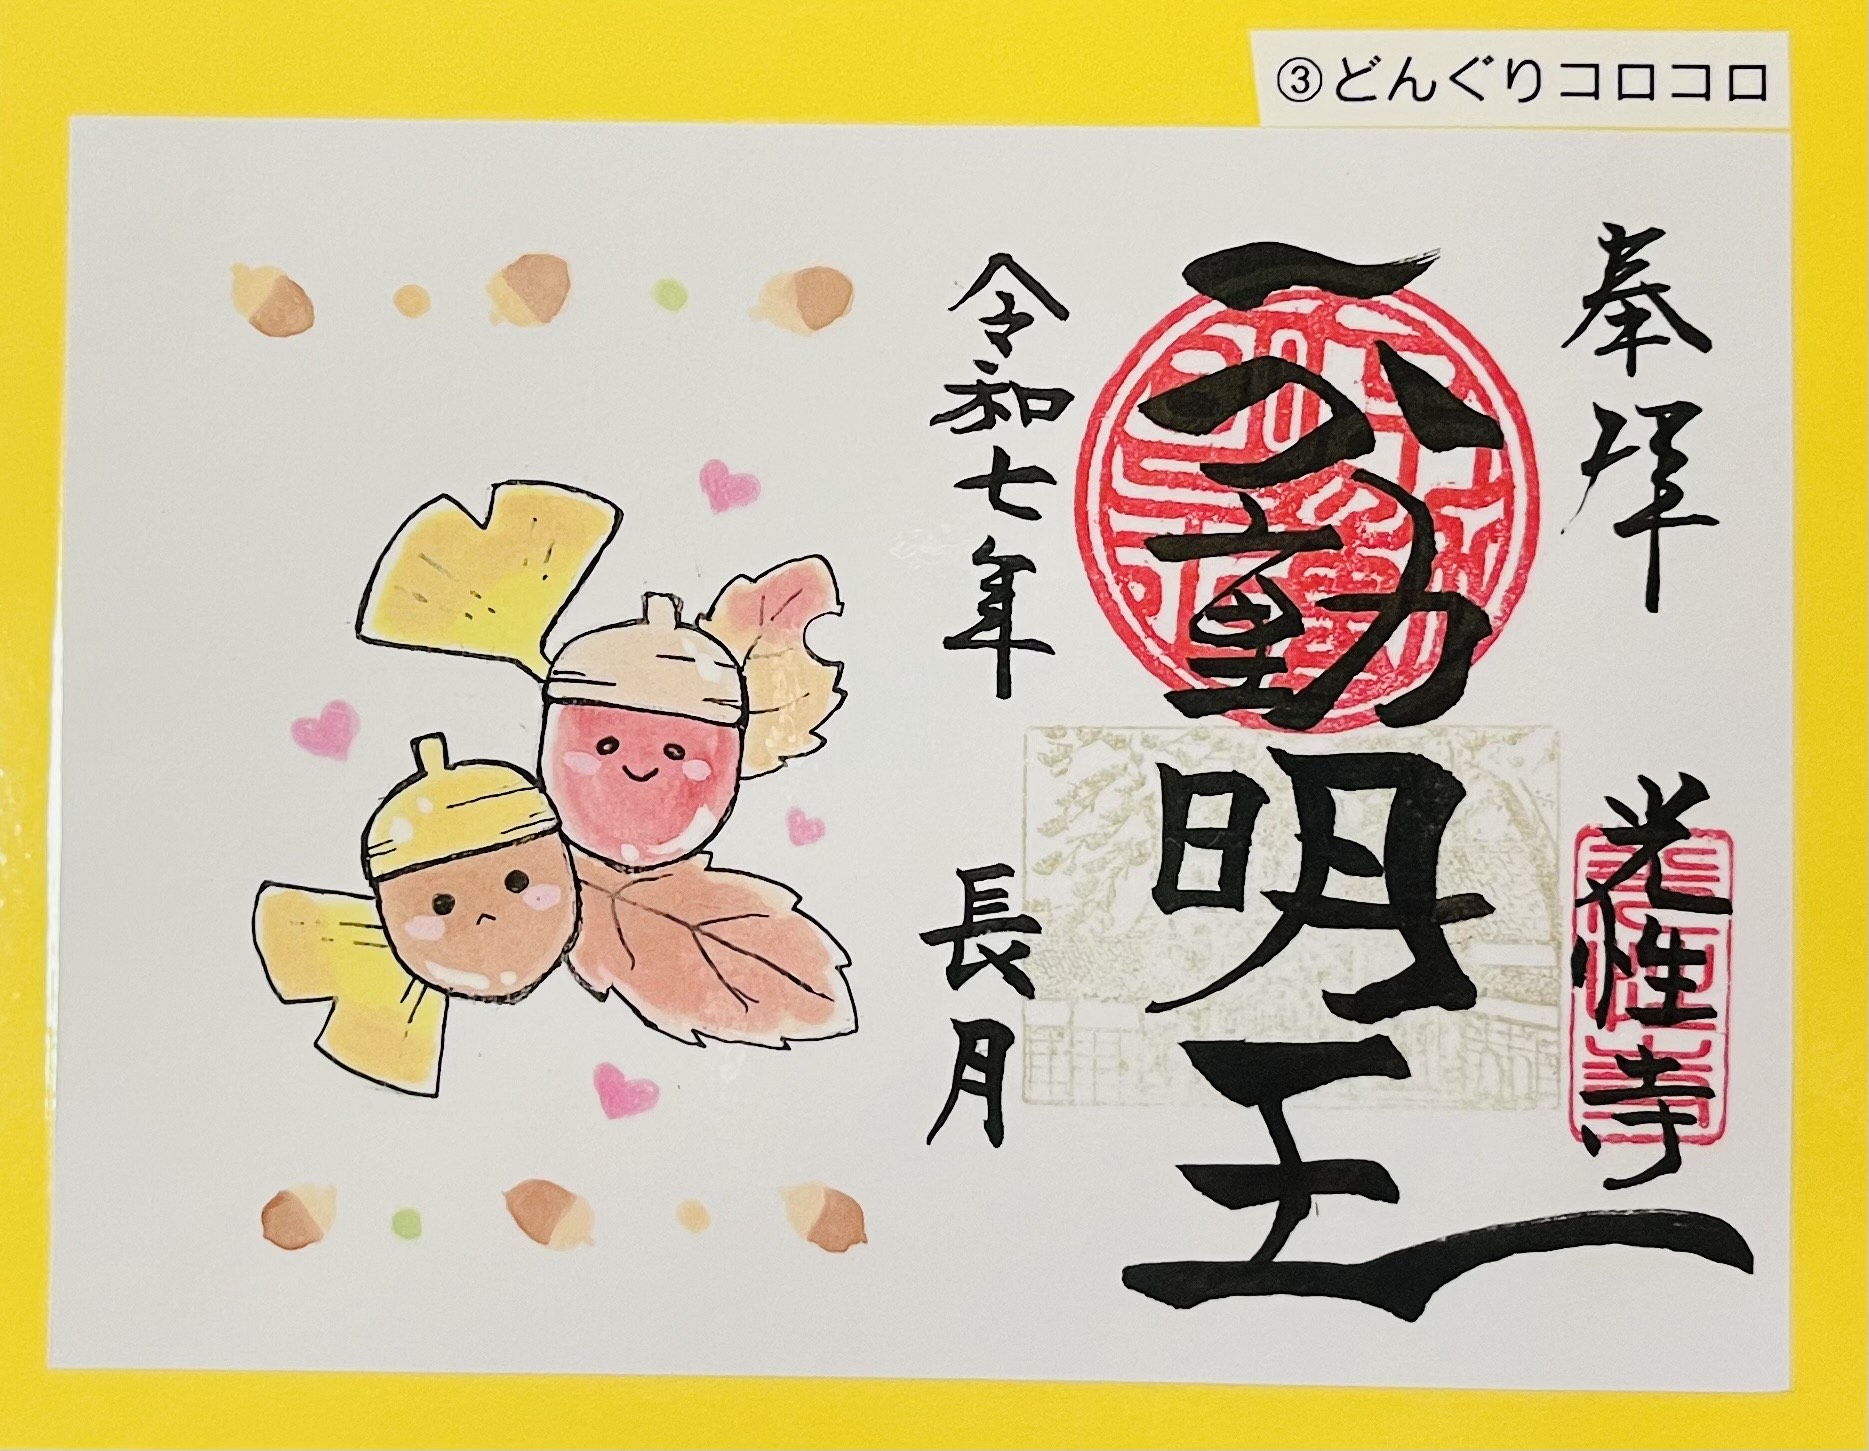 ③どんぐりコロコロ
奉拝
光性寺
不動明王
令和七年
長月